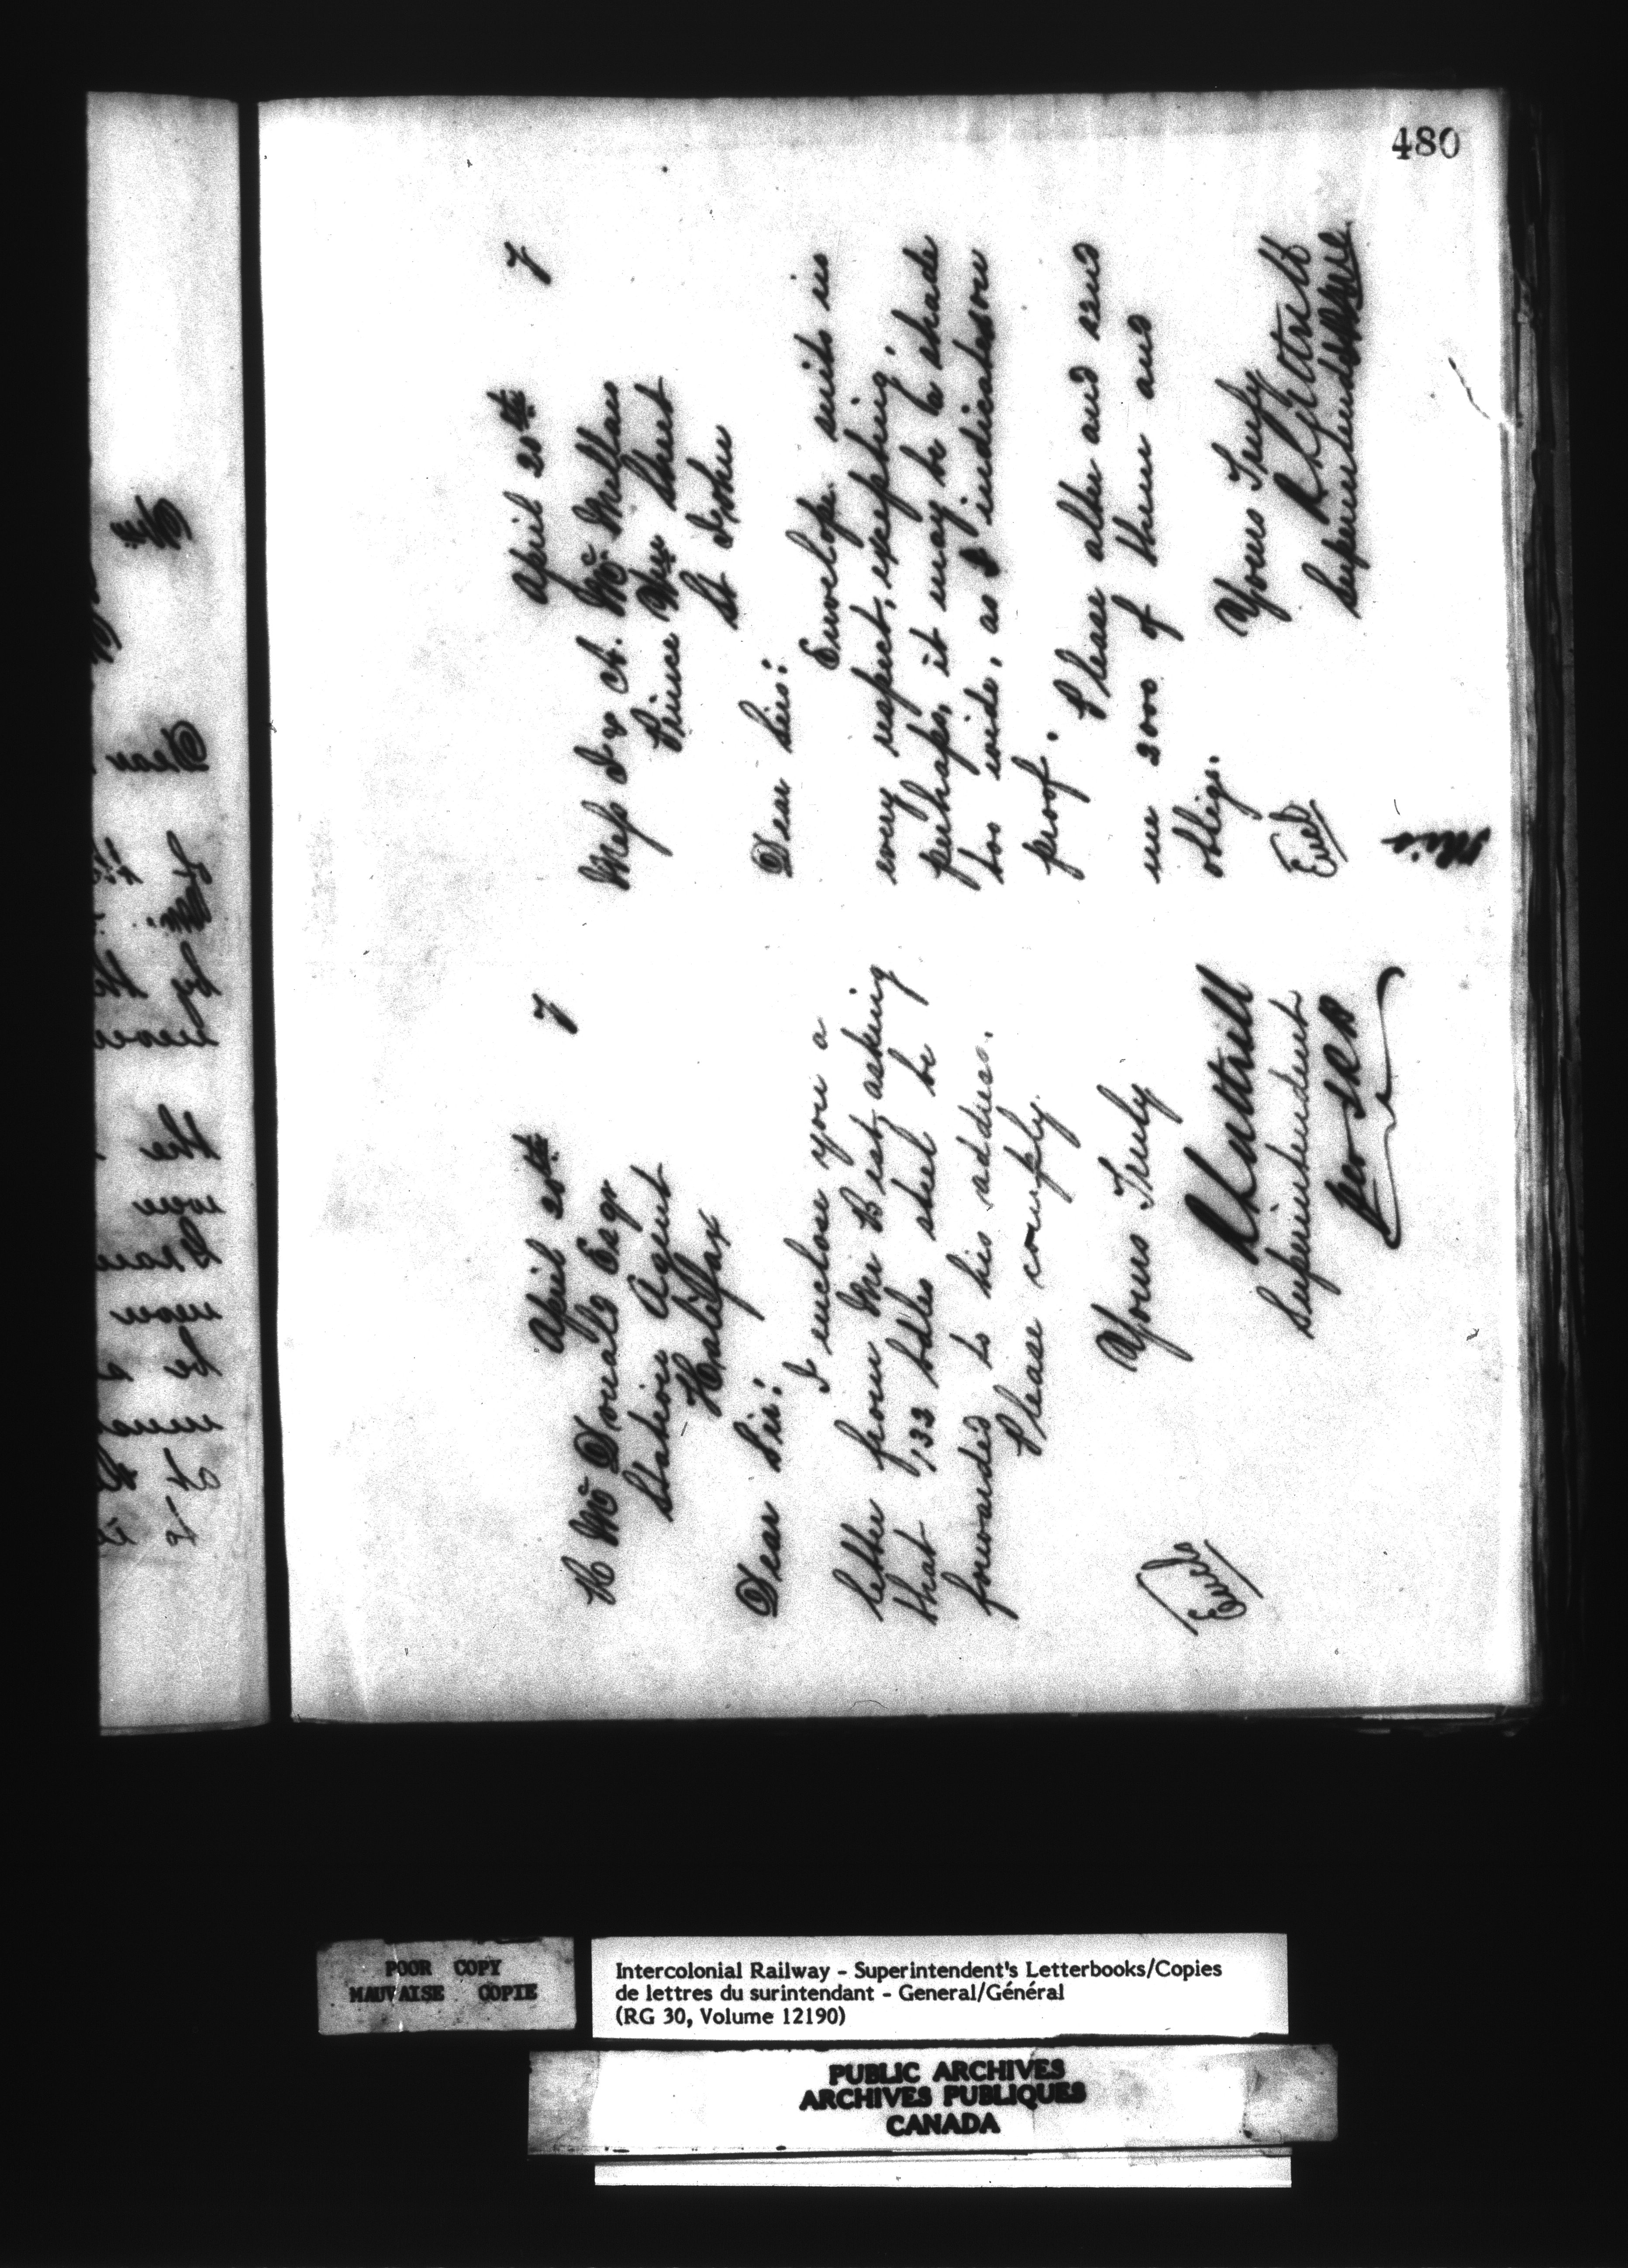 480
April 20th 7
H McDonald Esqr
Station Agent
Halifax
Dear Sir:
I enclose you a
letter from Mr Best asking
that 133 bdles steel be
forwarded to his address.
Please comply.
Yours Truly
R Luttrell
Superintendent
per
Encl
April 20th 7
Mess J & A. McMillan
Prince Wm Street
St John
Dear Sirs:
Envelope suits in
every respect, excepting,
perhaps, it may be a shade
too wide, as I indicated on
proof.
Please alter and send
me 2000 of them and
oblige.
Yours Truly
R Luttrell
Superintendent
Encl
POOR COPY
MAUVAISE COPIE
Intercolonial Railway - Superintendent's Letterbooks/Copies
de lettres du surintendant - General/Général
(RG 30, Volume 12190)
PUBLIC ARCHIVES
ARCHIVES PUBLIQUES
CANADA